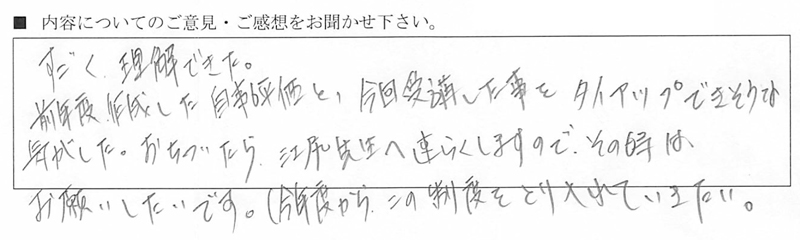 ■ 内容についてのご意見・ご感想をお聞かせ下さい。
すごく、理解できた。
前年度、作成した自事評価と、今回受講した事を タイアップできそうな
気がした。おちついたら、江尻先生へ連らくしますので、その時は
お願いしたいです。(今年度から、この制度をとり入れていきたい。